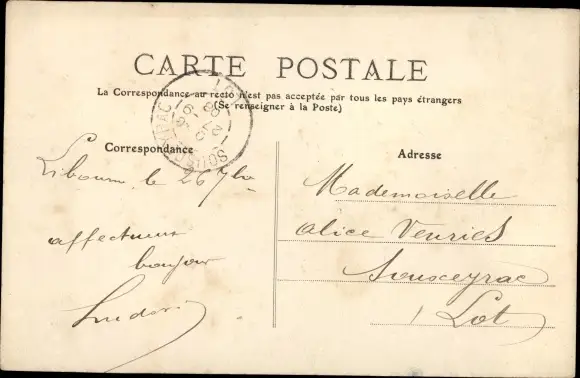 CARTE POSTALE
La Correspondance au recto n'est pas acceptée par tous les pays étrangers
(Se renseigner à la Poste)
Correspondance
Libourne le 26 7bre
affectueux
bonjour
Adresse
Mademoiselle
Alice Vevries
Sousceyrac
Lot
SOUSCEYRAC